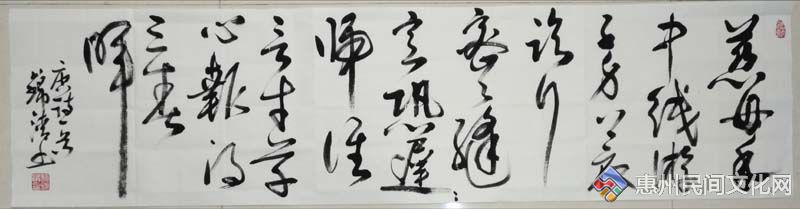 慈母手
中綫游
子身上衣
临行
密密缝
意恐遲
歸谁
言寸草
心報得
三春
暉
唐詩
惠州民间文化网